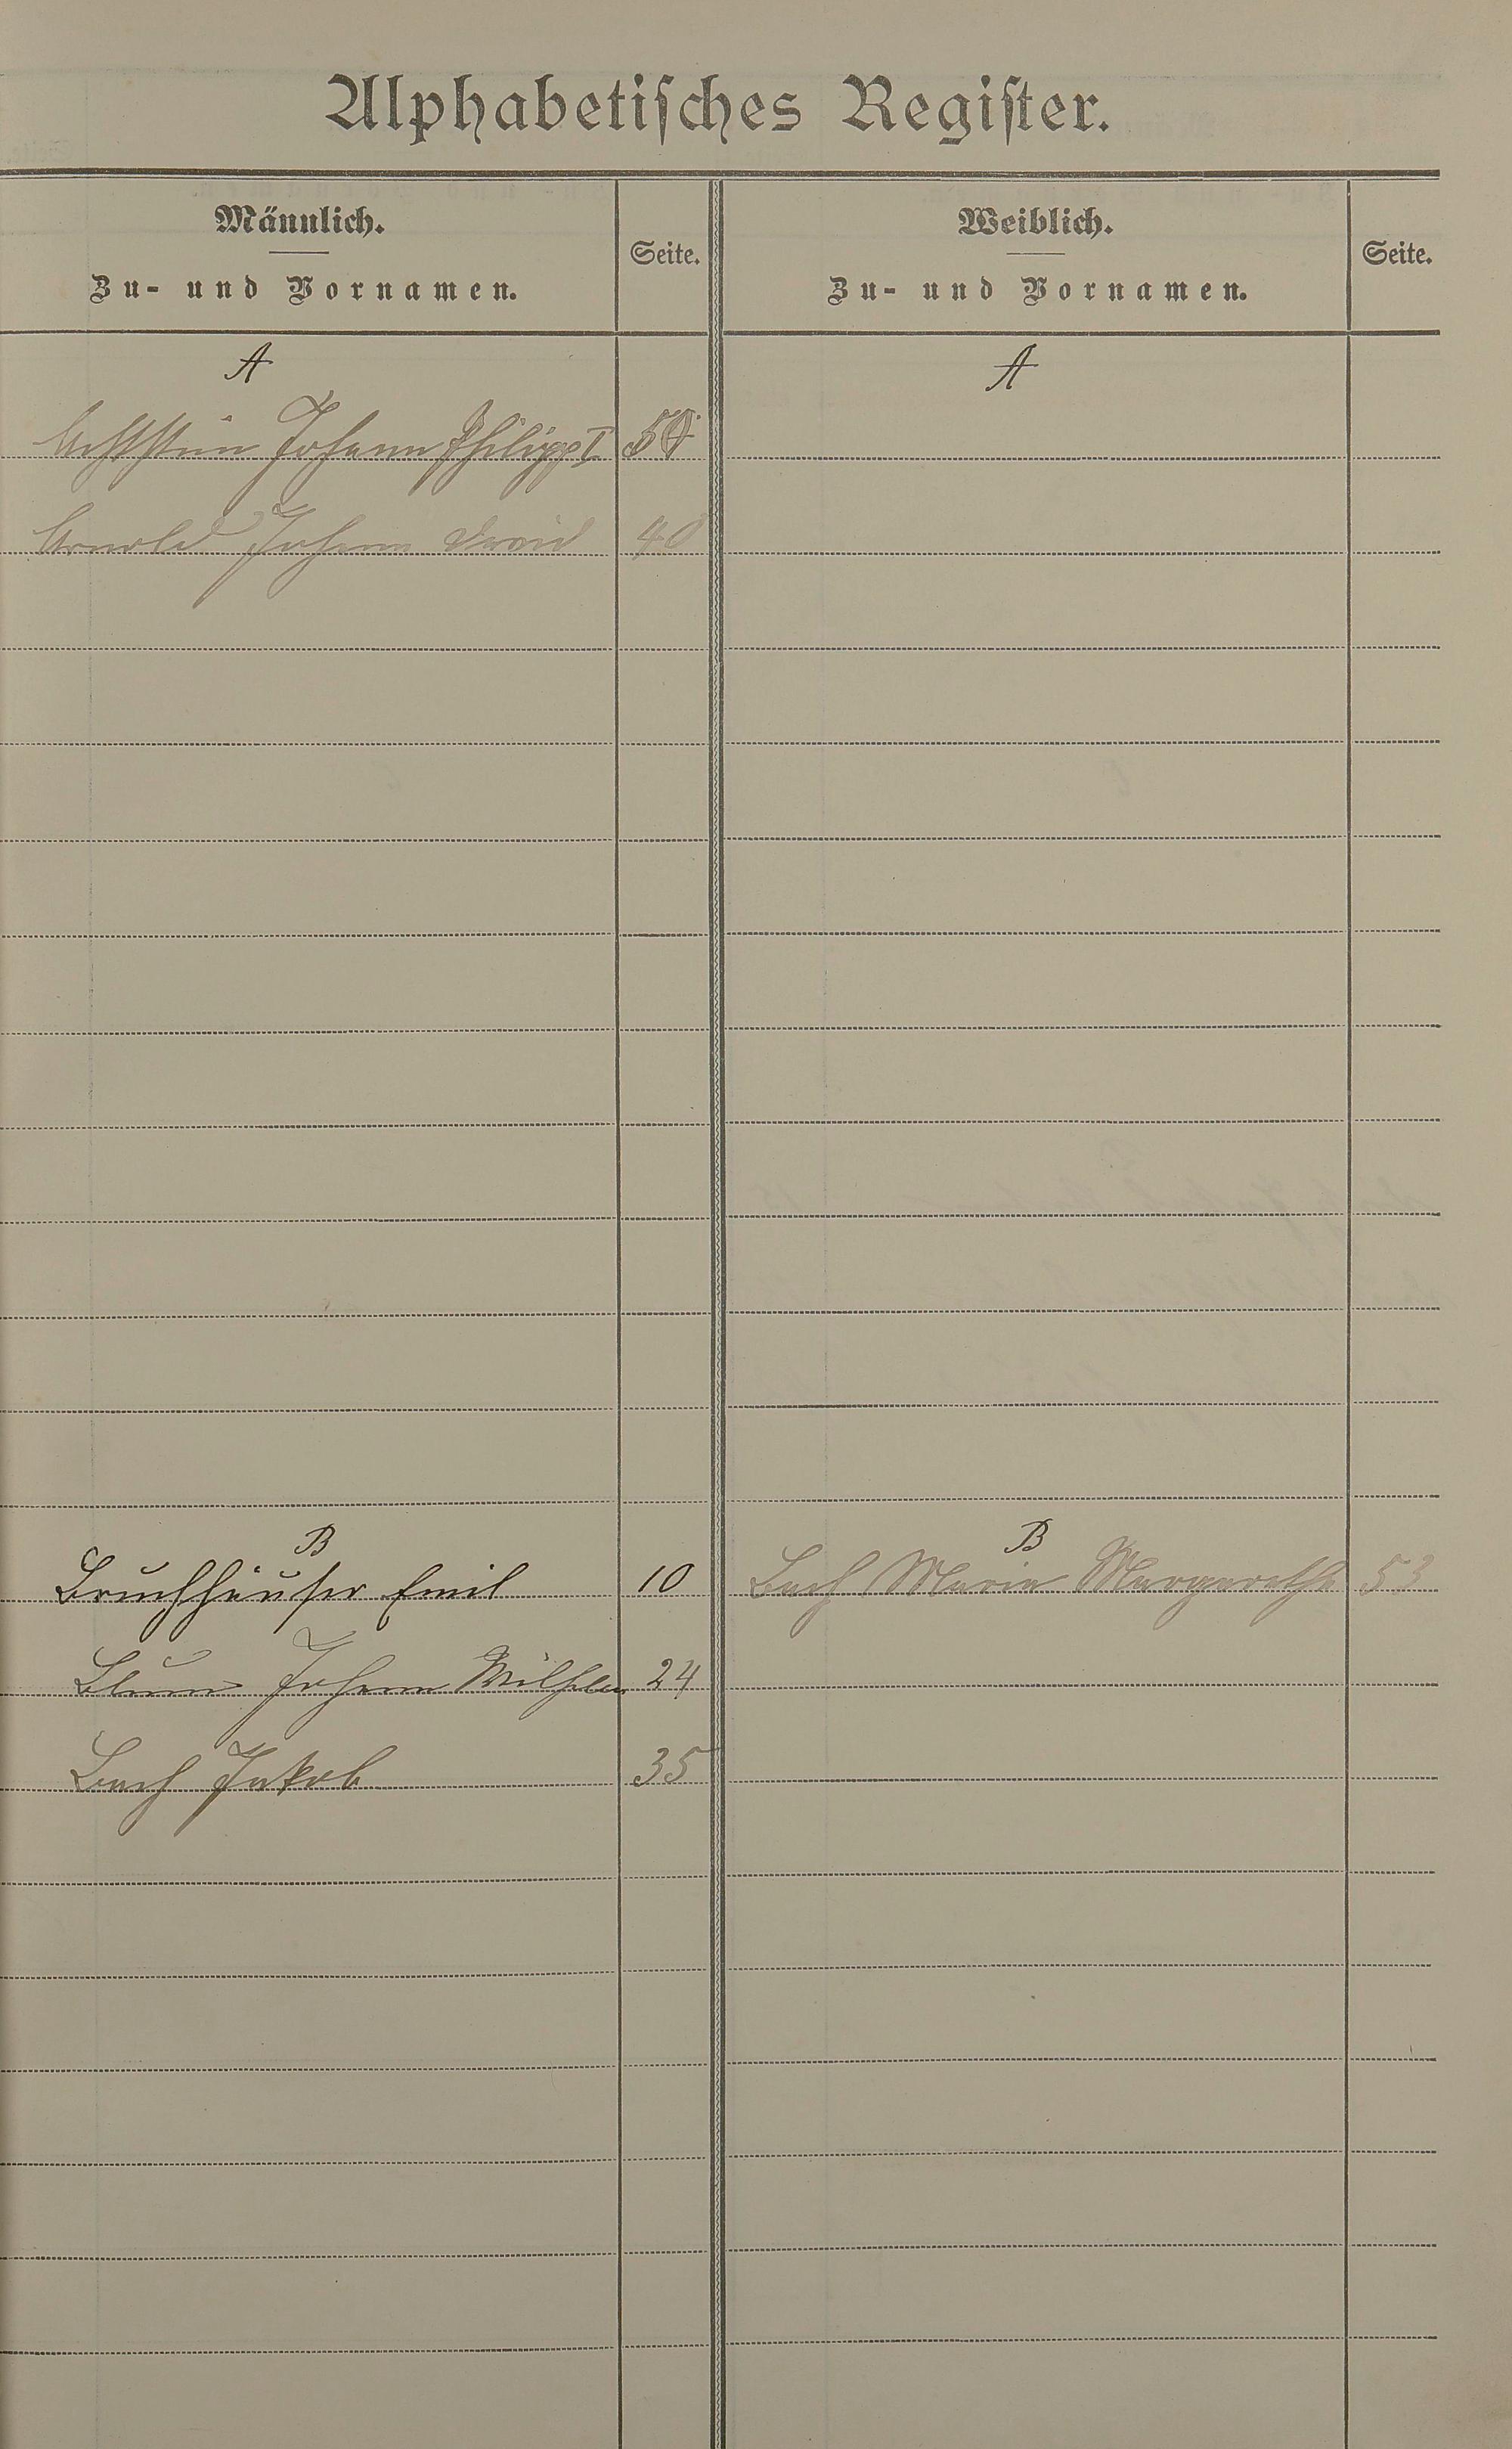 Alphabetisches Register.
Männlich.
Zu- und Vornamen.
Seite.
Weiblich.
Zu- und Vornamen.
Seite.
A
A
Johann Philipp I
Arnold Johann David 40
B
B
Bruchhäuser Emil 10
Bach Maria Margarethe 53
Blum Johann Wilhelm 24
Bach Jakob 35